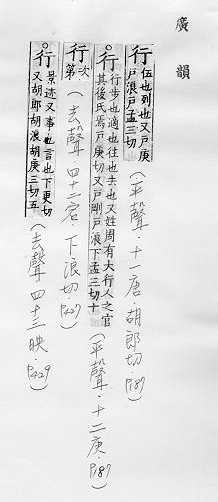 廣韻
行 伍也列也又戶庚
戶浪戶孟三切（平聲．十一唐．胡郎切．P.187）
○行 行步也適也往也去也又姓周有大行人之官
其後氏焉戶庚切又戶剛戶浪下孟三切十（平聲．十二庚．P.187）
行 次第（去聲．四十二宕．下浪切．P.427）
○行 景迹又事也言也下更切
又胡郎胡浪胡庚三切五（去聲四十三映．P.429）